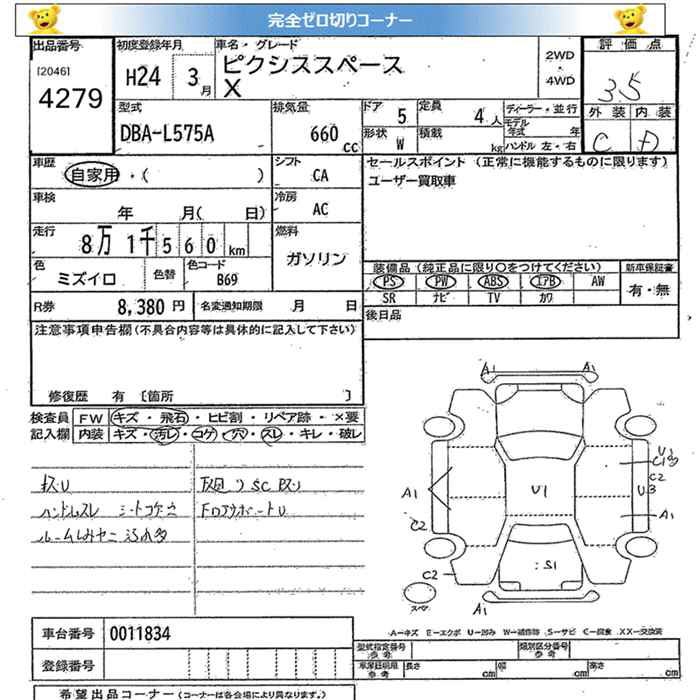 完全ゼロ切りコーナー
出品番号
[2046]
4279
初度登録年月
H24 3月
車名・グレード
ピクシススペース
X
2WD
・
4WD
評価点
3.5
外装 内装
C D
型式
DBA-L575A
排気量
660 cc
ドア 5
形状 W
定員 4人
積載 kg
ディーラー・並行
モデル年式 年
ハンドル 左・右
車歴
自家用・( )
シフト
CA
セールスポイント (正常に機能するものに限ります)
ユーザー買取車
車検
年 月( 日)
冷房
AC
走行
8万1千560km
燃料
ガソリン
色
ミズイロ
色替
色コード
B69
装備品(純正品に限り○をつけてください)
新車保証書
PS PW ABS エアB AW
SR ナビ TV カワ
有・無
R券 8,380円
名変通知期限 月 日
後日品
注意事項申告欄(不具合内容等は具体的に記入して下さい)
修復歴 有 [箇所 ]
検査員 FW キズ・飛石・ヒビ割・リペア跡・×要
記入欄 内装 キズ・汚レ・コゲ・穴・スレ・キレ・破レ
A1 A1
U1
A1
C2
C2
A1
S1
C2
U3
A1
A-キズ E-エクボ U-凹み W-補修跡 S-サビ C-腐食 XX-交換済
車台番号 0011834
登録番号
型式指定番号
参考
類別区分番号
参考
車庫証明用
参考
長さ cm 幅 cm 高さ cm
希望出品コーナー(コーナーは各会場により異なります。)